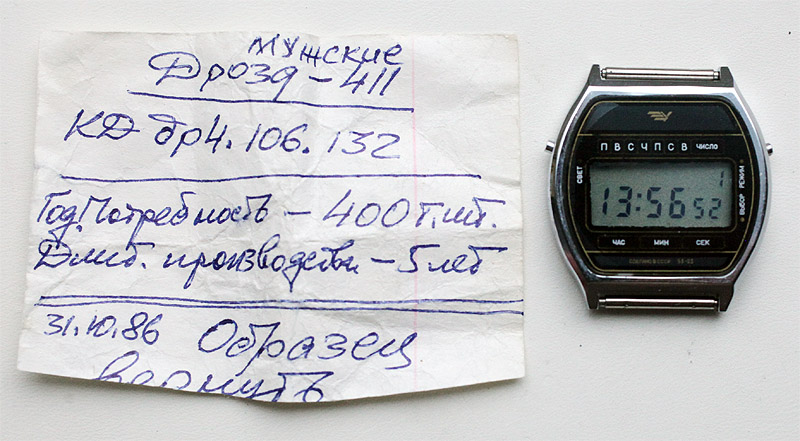 мужские
Дрозд - 411
КД др4.106.132
Год. Потребность - 400 т.шт.
Длит. производства - 5 лет
31.10.86 Образец
вернуть
П В С Ч П С В ЧИСЛО
СВЕТ
ВЫБОР РЕЖИМ
1
13:56 52
ЧАС МИН СЕК
СДЕЛАНО В СССР